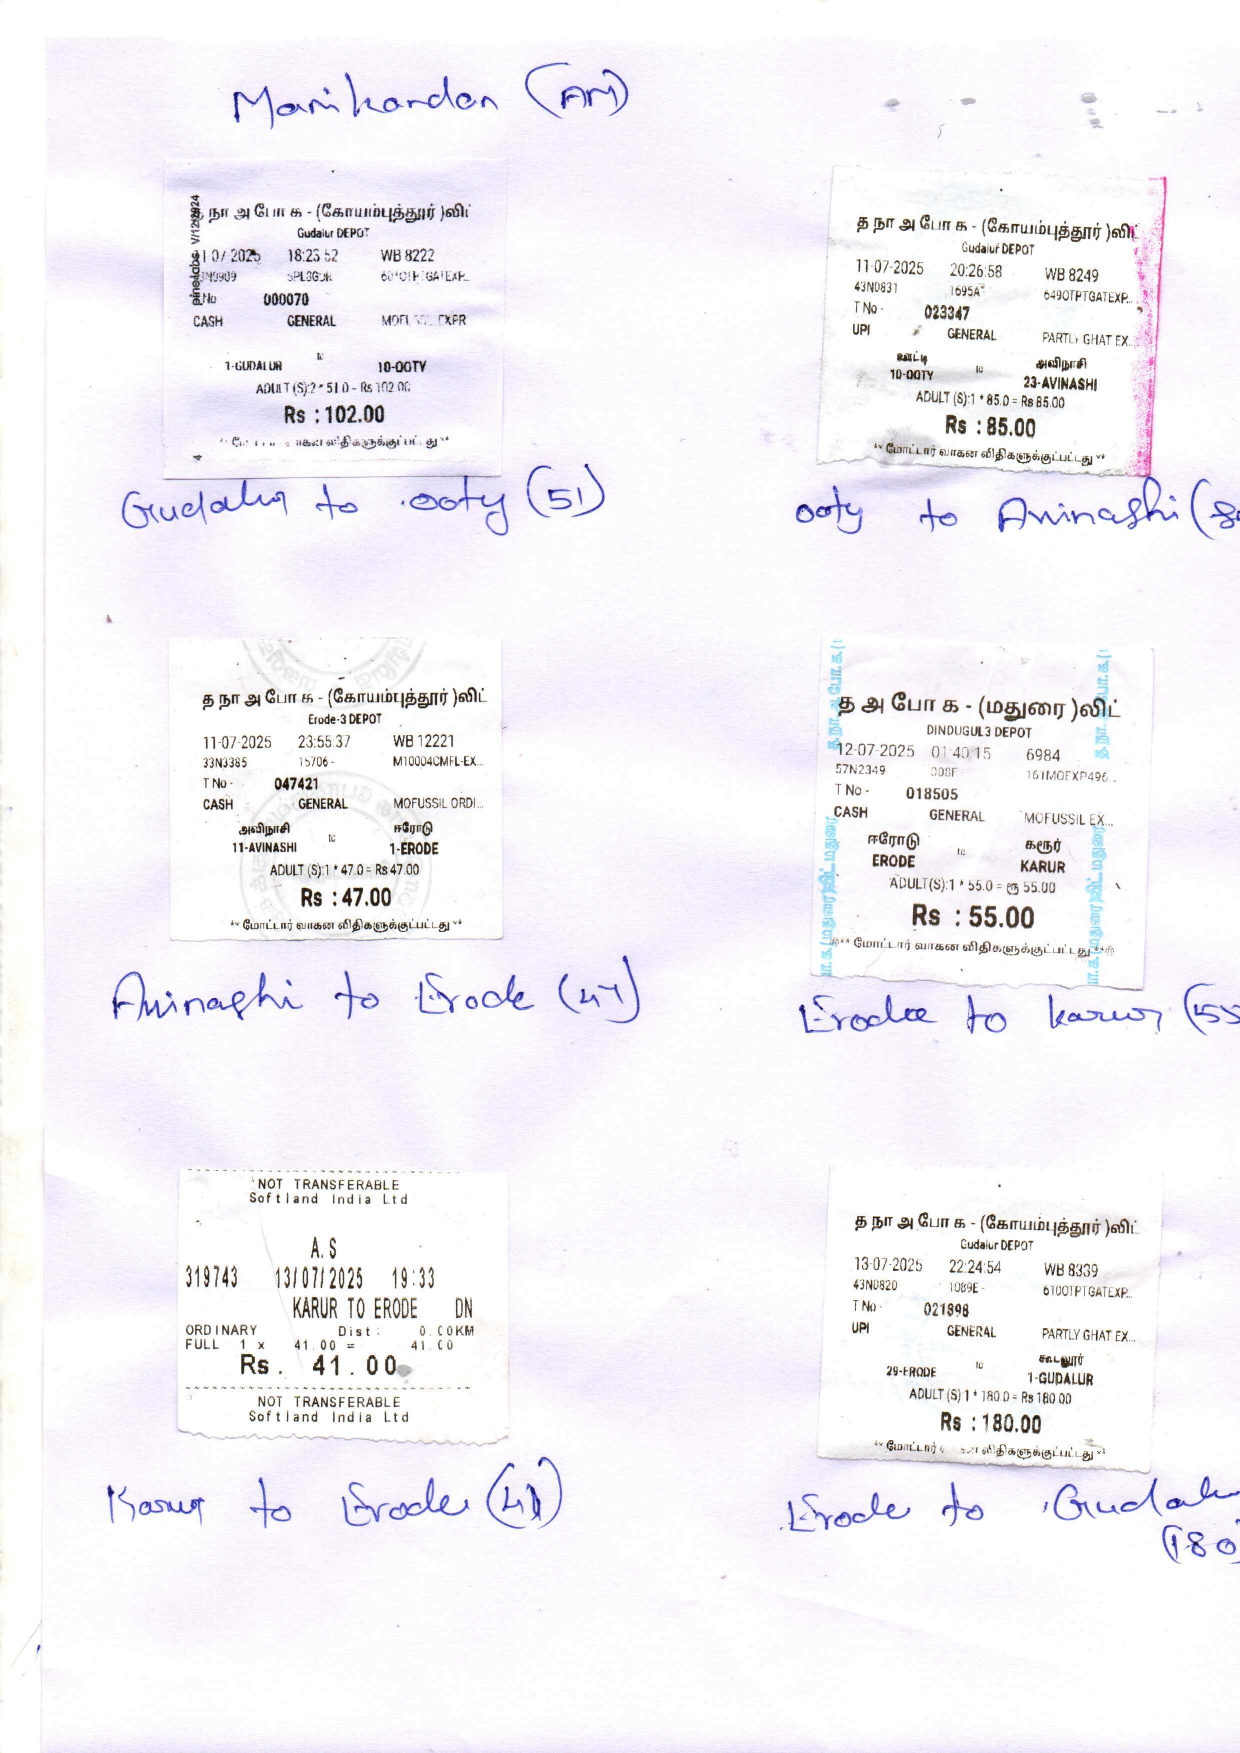 Manikandan (AM)
த நா அ போ க - (கோயம்புத்தூர் )லிட்
Gudalur DEPOT
2025 18:23:52 WB 8222
No 000070
CASH GENERAL EXPR
1-GUDALUR to 10-OOTY
ADULT (S):2 * 51.0 = Rs 102.00
Rs : 102.00
Gudalur to ooty (51)
த நா அ போ க - (கோயம்புத்தூர் )லிட்
Gudalur DEPOT
11-07-2025 20:26:58 WB 8249
43N0831 1695A 649OTPTGATEXP...
T No - 023347
UPI GENERAL PARTLY GHAT EX...
ஊட்டி அவிநாசி
10-OOTY to 23-AVINASHI
ADULT (S):1 * 85.0 = Rs 85.00
Rs : 85.00
** மோட்டார் வாகன விதிகளுக்குட்பட்டது **
ooty to Avinashi (
த நா அ போ க - (கோயம்புத்தூர் )லிட்
Erode-3 DEPOT
11-07-2025 23:55:37 WB 12221
33N3385 15706 - M10004CMFL-EX...
T No - 047421
CASH GENERAL MOFUSSIL ORDI...
அவிநாசி ஈரோடு
11-AVINASHI to 1-ERODE
ADULT (S):1 * 47.0 = Rs 47.00
Rs : 47.00
** மோட்டார் வாகன விதிகளுக்குட்பட்டது **
Avinashi to Erode (47)
த அ போ க - (மதுரை )லிட்
DINDUGUL3 DEPOT
12-07-2025 01:40:15 6984
57N2349 008F 161MOEXP496...
T No - 018505
CASH GENERAL MOFUSSIL EX...
ஈரோடு கரூர்
ERODE to KARUR
ADULT(S):1 * 55.0 = ரூ 55.00
Rs : 55.00
** மோட்டார் வாகன விதிகளுக்குட்பட்டது **
Erode to karur (55
NOT TRANSFERABLE
Softland India Ltd
A.S
319743 13/07/2025 19:33
KARUR TO ERODE DN
ORDINARY Dist: 0.00KM
FULL 1 x 41.00 = 41.00
Rs. 41.00
NOT TRANSFERABLE
Softland India Ltd
Karur to Erode (41)
த நா அ போ க - (கோயம்புத்தூர் )லிட்
Gudalur DEPOT
13-07-2025 22:24:54 WB 8339
43N0820 1089E - 610OTPTGATEXP...
T No - 021898
UPI GENERAL PARTLY GHAT EX...
கூடலூர்
29-ERODE to 1-GUDALUR
ADULT (S):1 * 180.0 = Rs 180.00
Rs : 180.00
** மோட்டார் வாகன விதிகளுக்குட்பட்டது **
Erode to Gudalu
(180